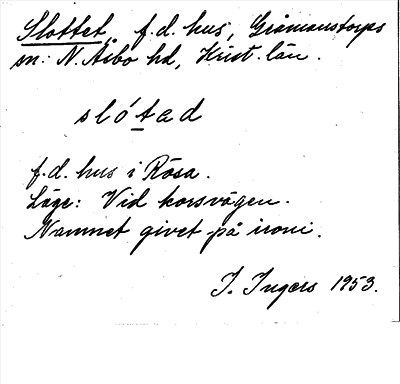 Slottet, f.d. hus, Gråmanstorps
sn: N. Åsbo hd, Krist. län.
slótad
f.d. hus i Rösa.
Läge: Vid korsvägen.
Namnet givet på ironi.
I. Ingers 1953.